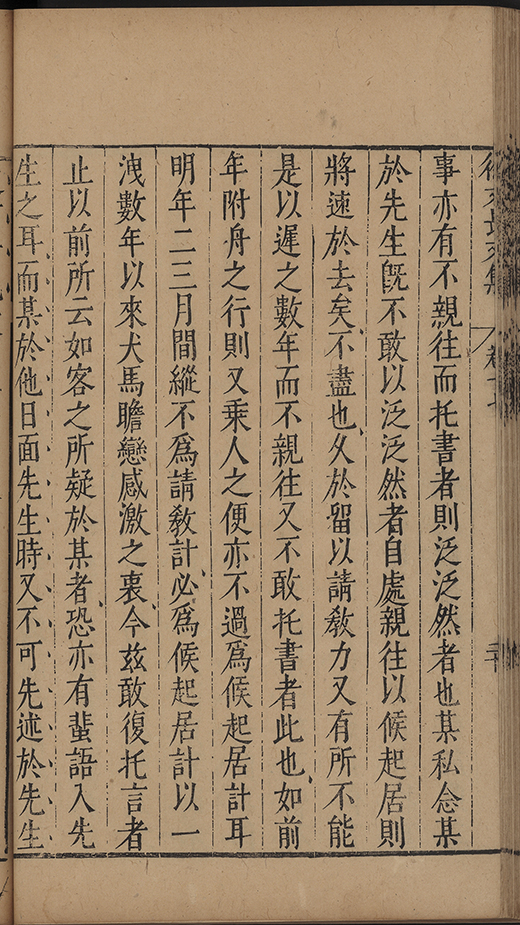 文集
卷十七
事亦有不親往而托書者則泛泛然者也某私念某
於先生旣不敢以泛泛然者自處親往以候起居則
將速於去矣不盡也久於留以請敎力又有所不能
是以遲之數年而不親往又不敢托書者此也如前
年附舟之行則又乘人之便亦不過爲候起居計耳
明年二三月間縱不爲請敎計必爲候起居計以一
洩數年以來犬馬瞻戀感激之衷今玆敢復托言者
止以前所云如客之所疑於某者恐亦有蜚語入先
生之耳而某於他日面先生時又不可先述於先生